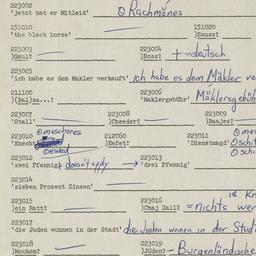 223002
'jetzt hat er Mitleid' Rachmónes
151010 151020
'the black horse' )Szusz?
223003 223004
)Gaul? )Ross? + – deutsch
223005
'ich habe es dem Makler verkauft' ich habe es dem Mäkler ve
211100 223006
'Maklergebühr' Mäklersgebüh
223007 223008 223009
'Stall' )Cheeder?
meschores
223010 212060 223011
'Knecht' )Hefet? 'Dienstmagd'
oewed
223012 223013
'zwei Pfennig' doesn't apply 'drei Pfennig'
223014
'sieben Prozent Zinsen'
18 Kr
223015 223016
)ein Ratt? )Chaj Zall? = nichts wer
223017
'die Juden wohnen in der Stadt' die Juden wonen in der Stud
223018 223019
)Mockem? )Jüden? – Burgenländische